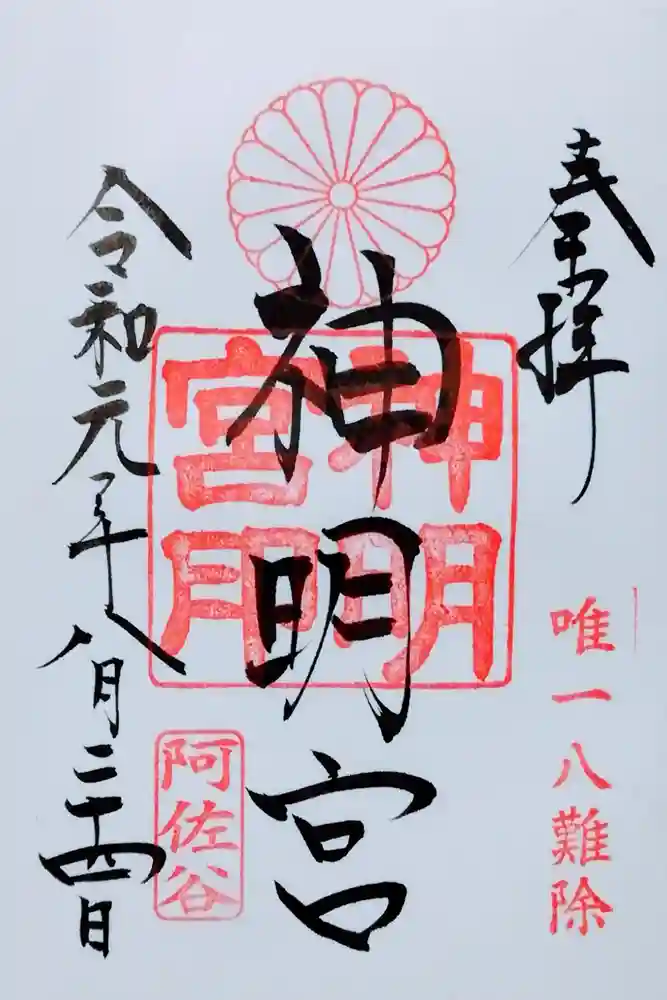 奉拝
唯一八難除
神明宮
神明
宮
令和元年八月二十四日
阿佐谷